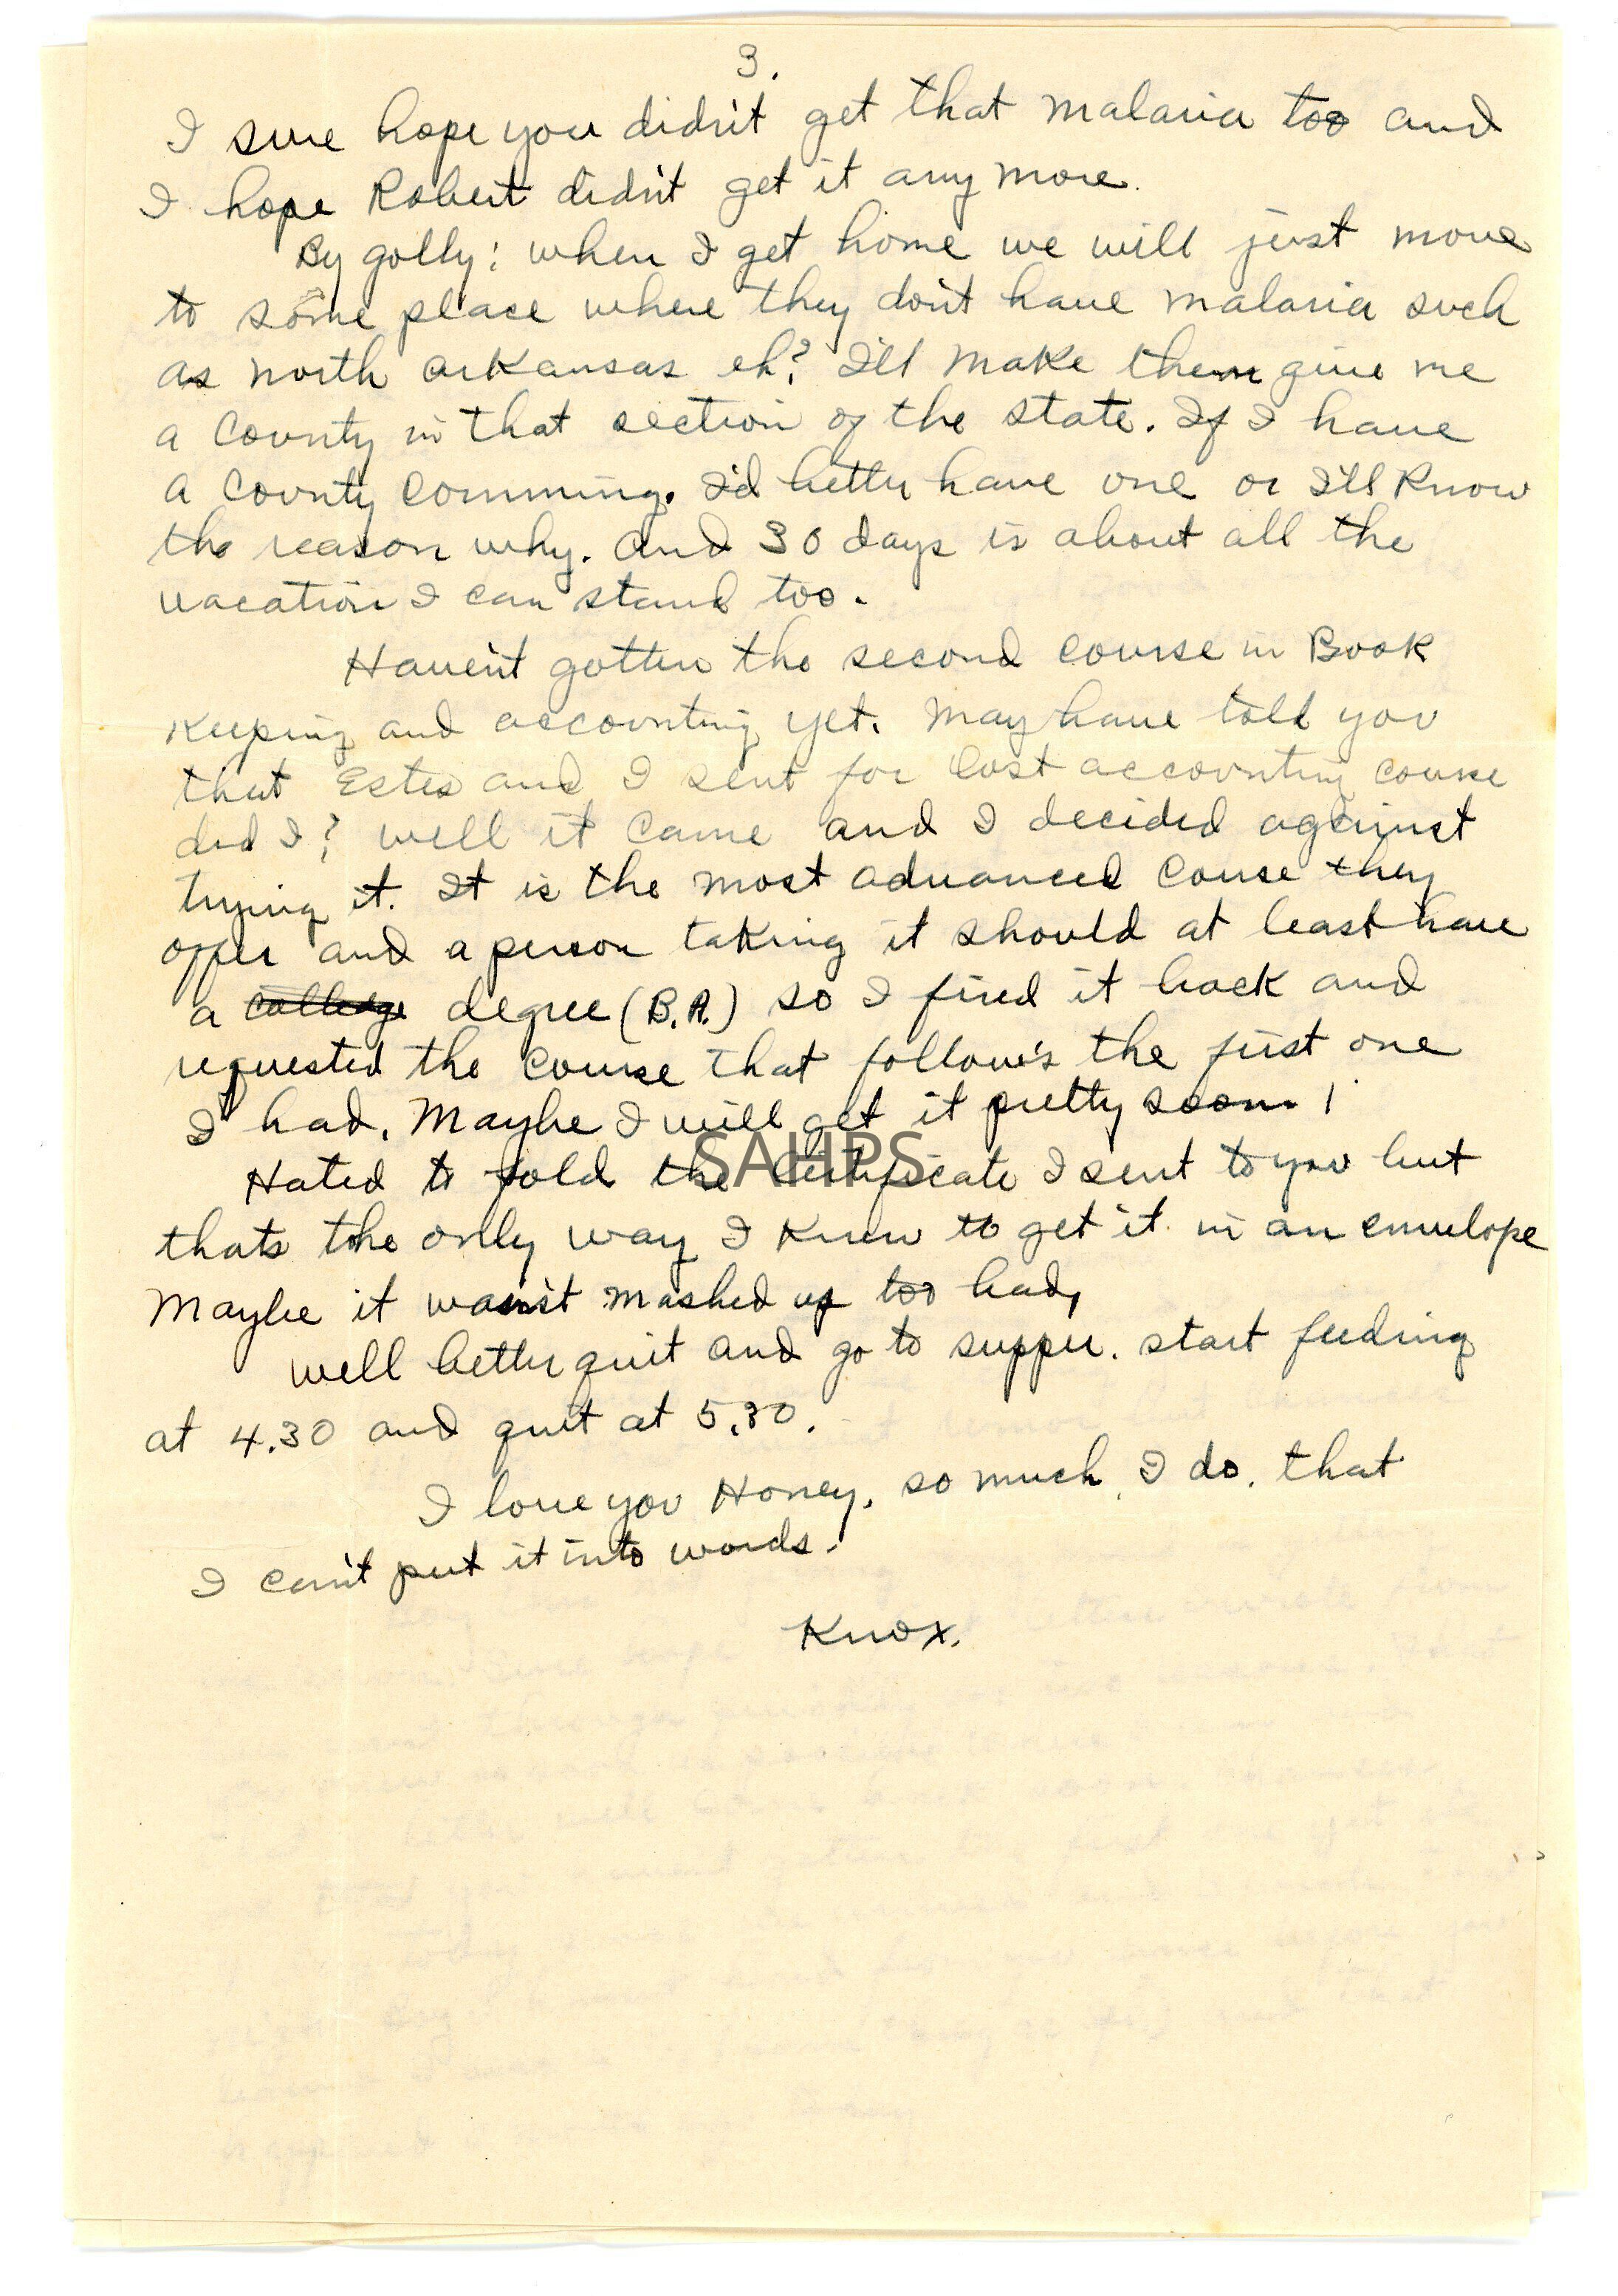 3.
I sure hope you did'nt get that malaria too and
I hope Robert did'nt get it any more.
By golly; when I get home we will just move
to some place where they don't have malaria such
as north arkansas eh? I'll make them give me
a county in that section of the state. If I have
a county comming. I'd better have one or I'll know
the reason why. and 30 days is about all the
vacation I can stand too.
Have'nt gotten the second course in Book
Keeping and accounting yet. May have told you
that Estes and I sent for Cost accounting course
did I? well it came and I decided against
trying it. It is the most advanced couse they
offer and a person taking it should at least have
a colledge degree (B.A.) so I fired it back and
requested the course that follow's the first one
I had. Maybe I will get it pretty soon!
SAHPS
Hated to fold the certificate I sent to you but
thats the only way I knew to get it in an envelope
Maybe it was'nt mashed up too bad,
well better quit and go to supper. start feeding
at 4.30 and quit at 5.30.
I love you Honey, so much, I do, that
I can't put it into words.
Knox.